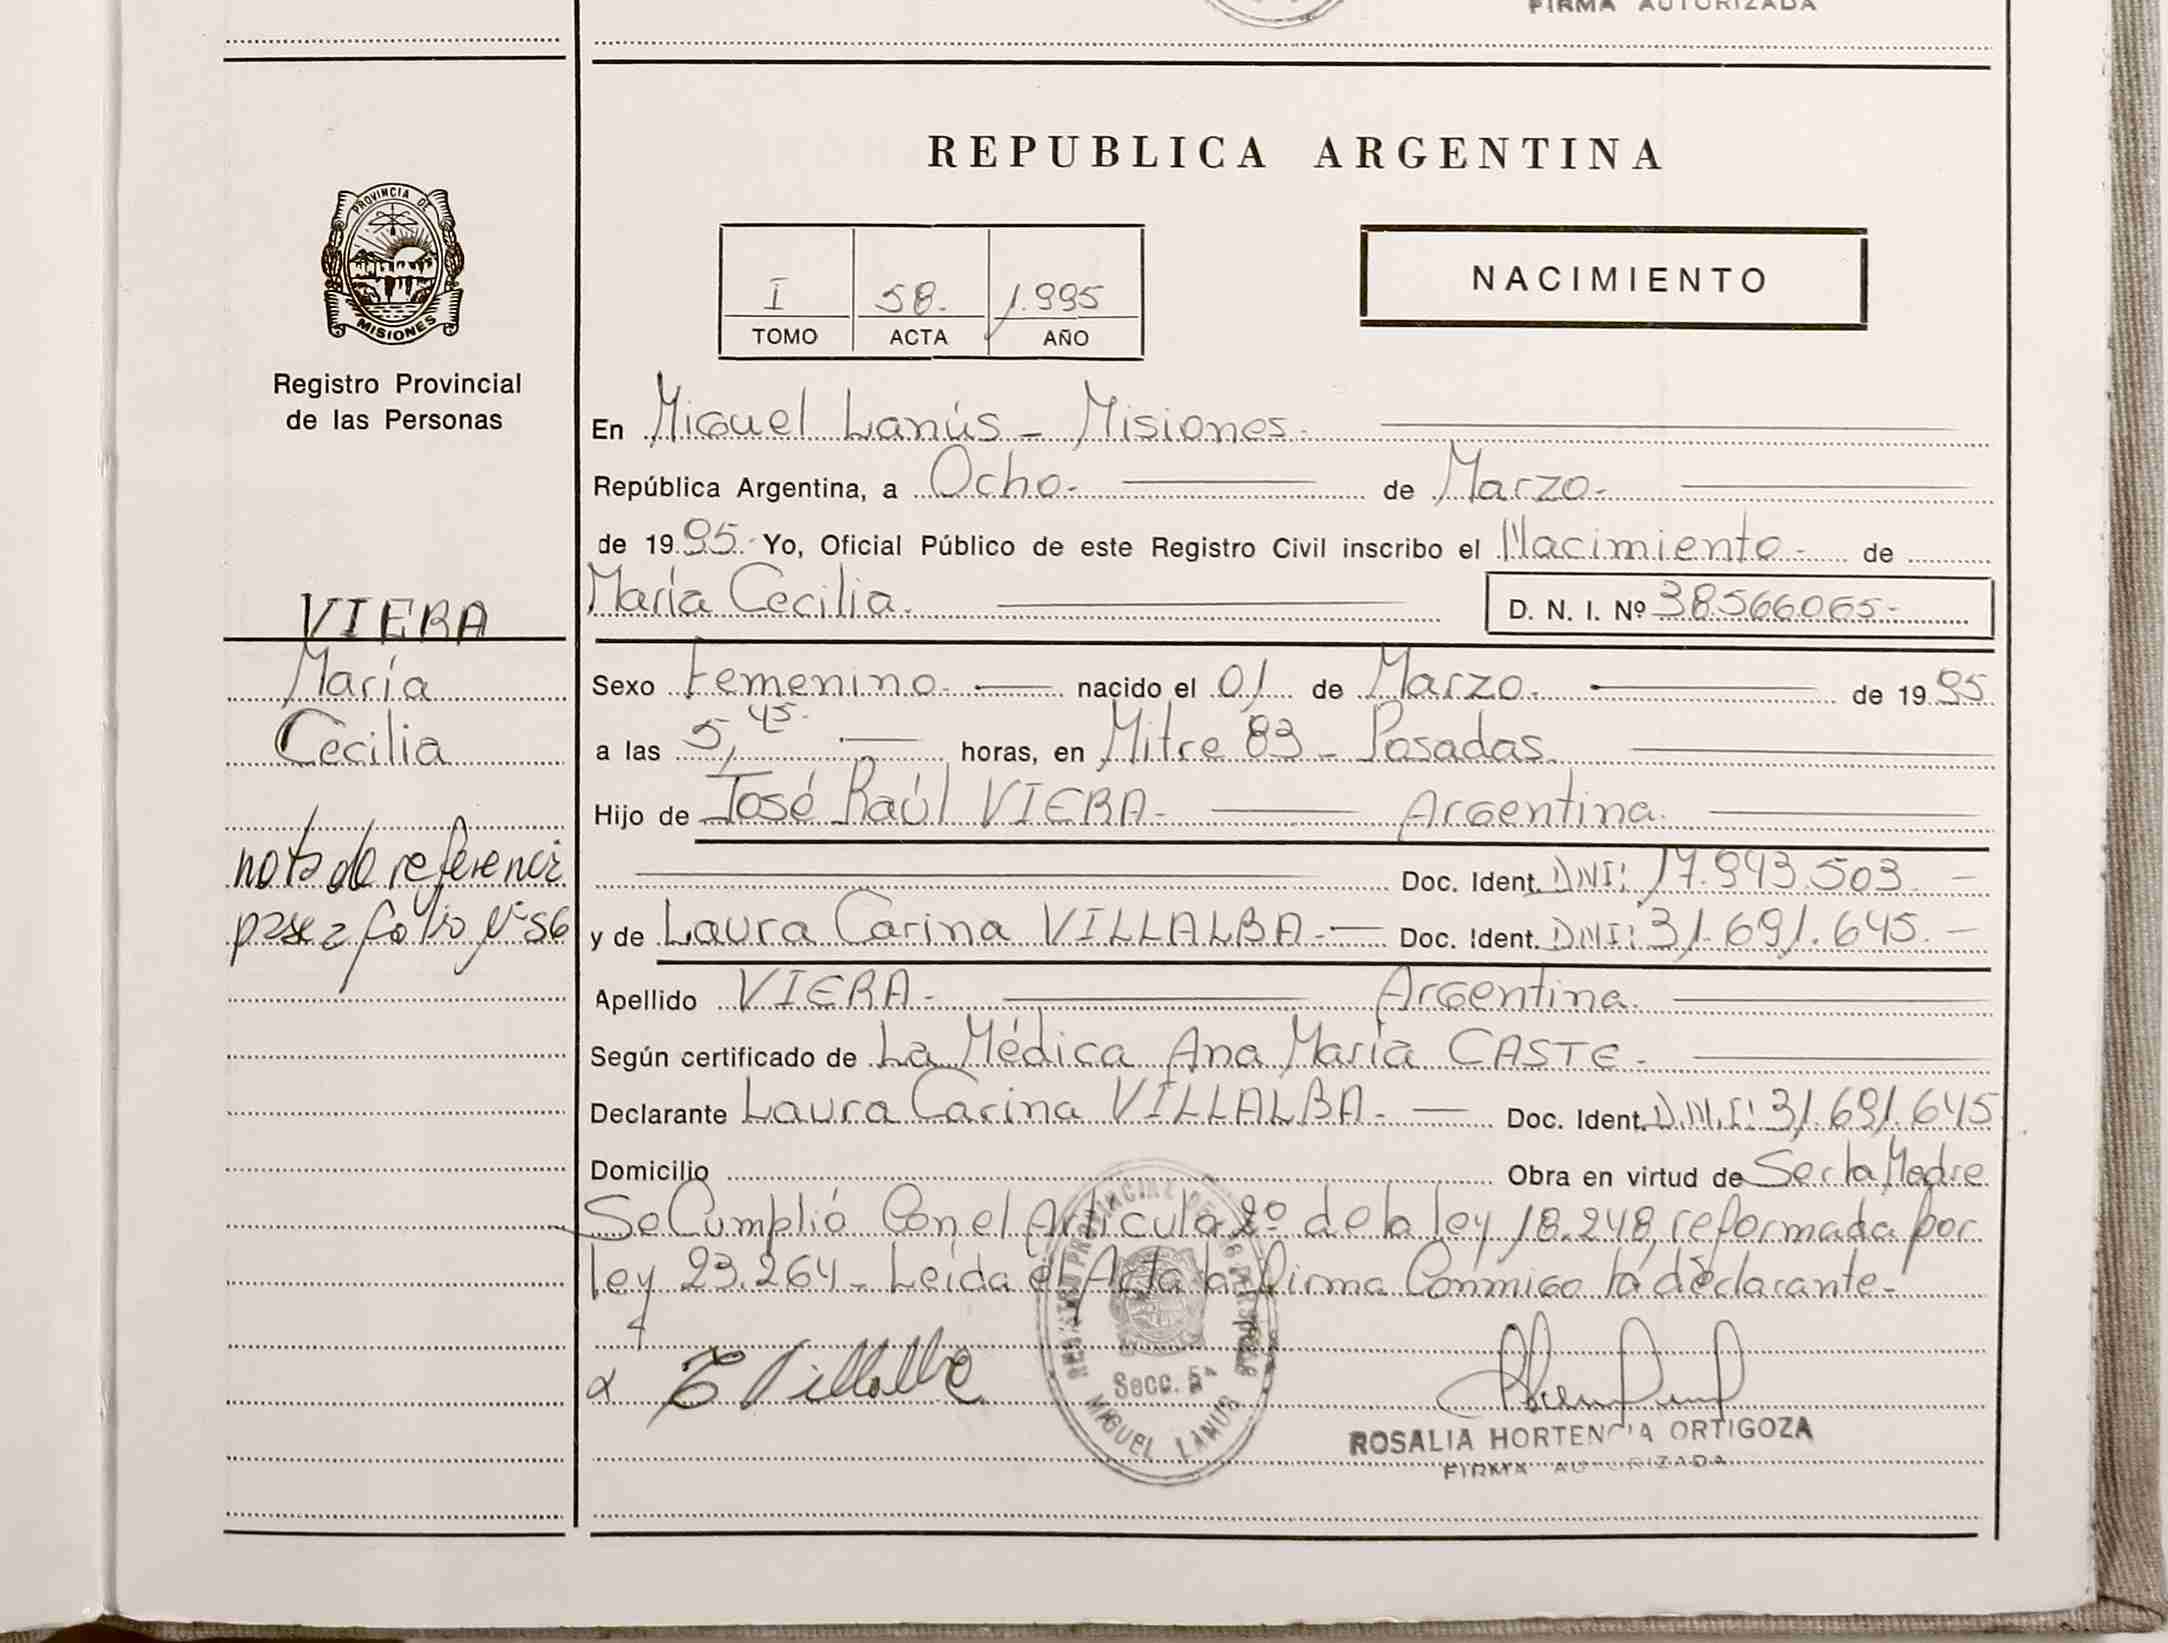 FIRMA AUTORIZADA
REPUBLICA ARGENTINA
PROVINCIA DE
MISIONES
Registro Provincial
de las Personas
I 58. 1.995
TOMO ACTA AÑO
NACIMIENTO
En Miguel Lanús - Misiones.
República Argentina, a Ocho. de Marzo.
de 19 95. Yo, Oficial Público de este Registro Civil inscribo el Nacimiento. de
María Cecilia. D. N. I. Nº 38.566.065-
VIERA
María
Cecilia
nota de referencia
pase a folio Nº 56
Sexo Femenino. nacido el 01 de Marzo. de 19 95
a las 5,45. horas, en Mitre 83 - Posadas.
Hijo de José Raúl VIERA. Argentina.
Doc. Ident. DNI: 17.943.503.
y de Laura Carina VILLALBA. Doc. Ident. DNI: 31.691.645.
Apellido VIERA. Argentina.
Según certificado de La Médica Ana María CASTE.
Declarante Laura Carina VILLALBA. Doc. Ident. D.N.I: 31.691.645
Domicilio Obra en virtud de Ser la Madre
Se Cumplió Con el Artículo 2º de la ley 18.248, reformada por
ley 23.264 - Leída el Acta la firma Conmigo la declarante.
Villalba
REGISTRO PROVINCIAL DE LAS PERSONAS
Secc. 5ª
MIGUEL LANUS
ROSALIA HORTENCIA ORTIGOZA
FIRMA AUTORIZADA